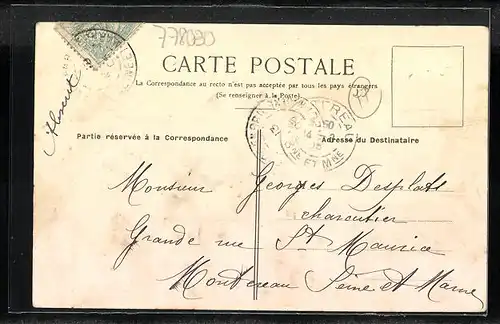 778090
CARTE POSTALE
La Correspondance au recto n'est pas acceptée par tous les pays étrangers
(Se renseigner à la Poste)
77
Absent
Partie réservée à la Correspondance
Adresse du Destinataire
SNE ET MNE
Monsieur Georges Desplats
charcutier
Grande rue St Maurice
Montereau Seine et Marne